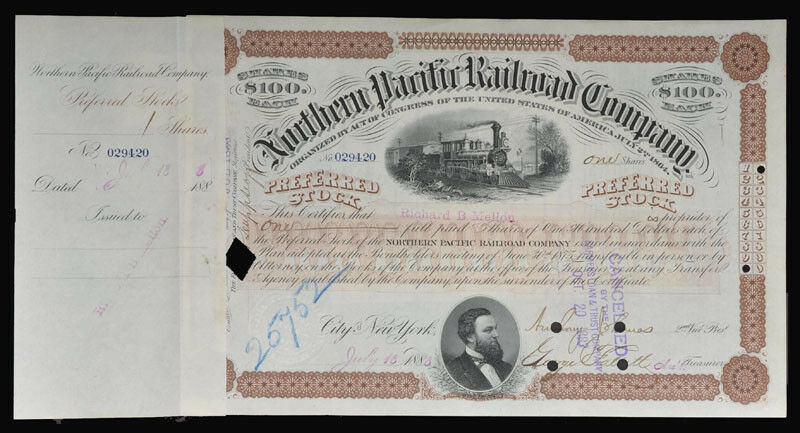 Northern Pacific Railroad Company.
Preferred Stock
1 Shares
No. 029420
Dated 13 188
Issued to
SHARES
$100.
EACH
Northern Pacific Railroad Company
ORGANIZED BY ACT OF CONGRESS OF THE UNITED STATES OF AMERICA, JULY 2nd 1864.
SHARES
$100.
EACH
No. 029420
one Shares
PREFERRED
STOCK
PREFERRED
STOCK
This Certifies that Richard B Mellon is proprietor of
One full paid Shares of One Hundred Dollars each of
the Preferred Stock of the NORTHERN PACIFIC RAILROAD COMPANY issued in accordance with the
Plan adopted at the Bondholders meeting of June 30th 1875 transferable in person or by
Attorney, on the Books of the Company at the office of the Treasurer or at any Transfer
Agency established by the Company, upon the surrender of this Certificate.
25752
City of New York,
July 13 1883
2nd Vice Prest
George
Treasurer
CANCELLED
BY THE
LOAN & TRUST COMPANY
1
2
3
4
5
6
7
8
9
0